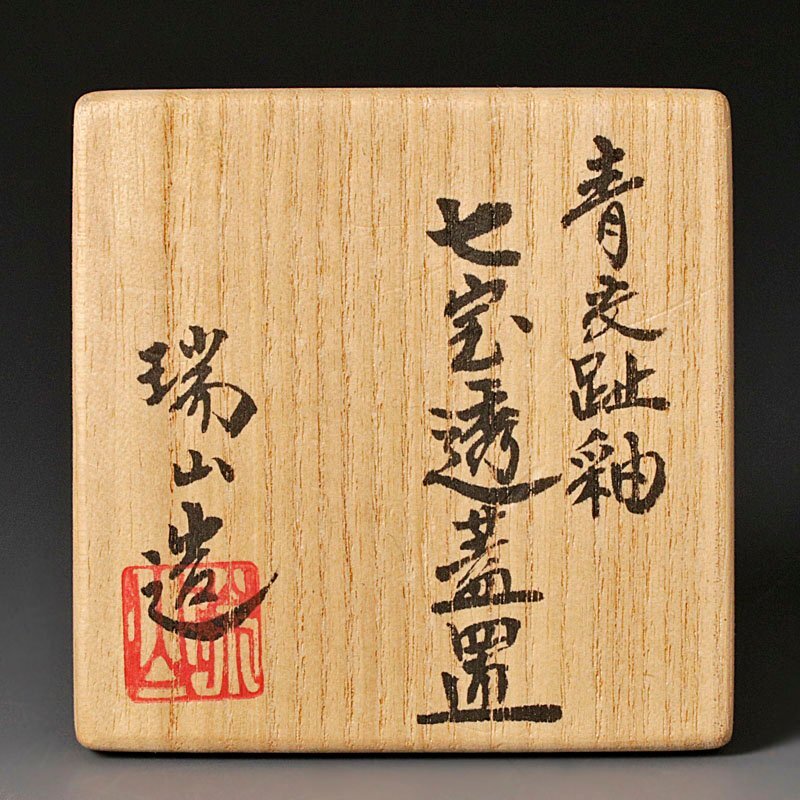 青交趾釉
七宝透蓋置
瑞山造